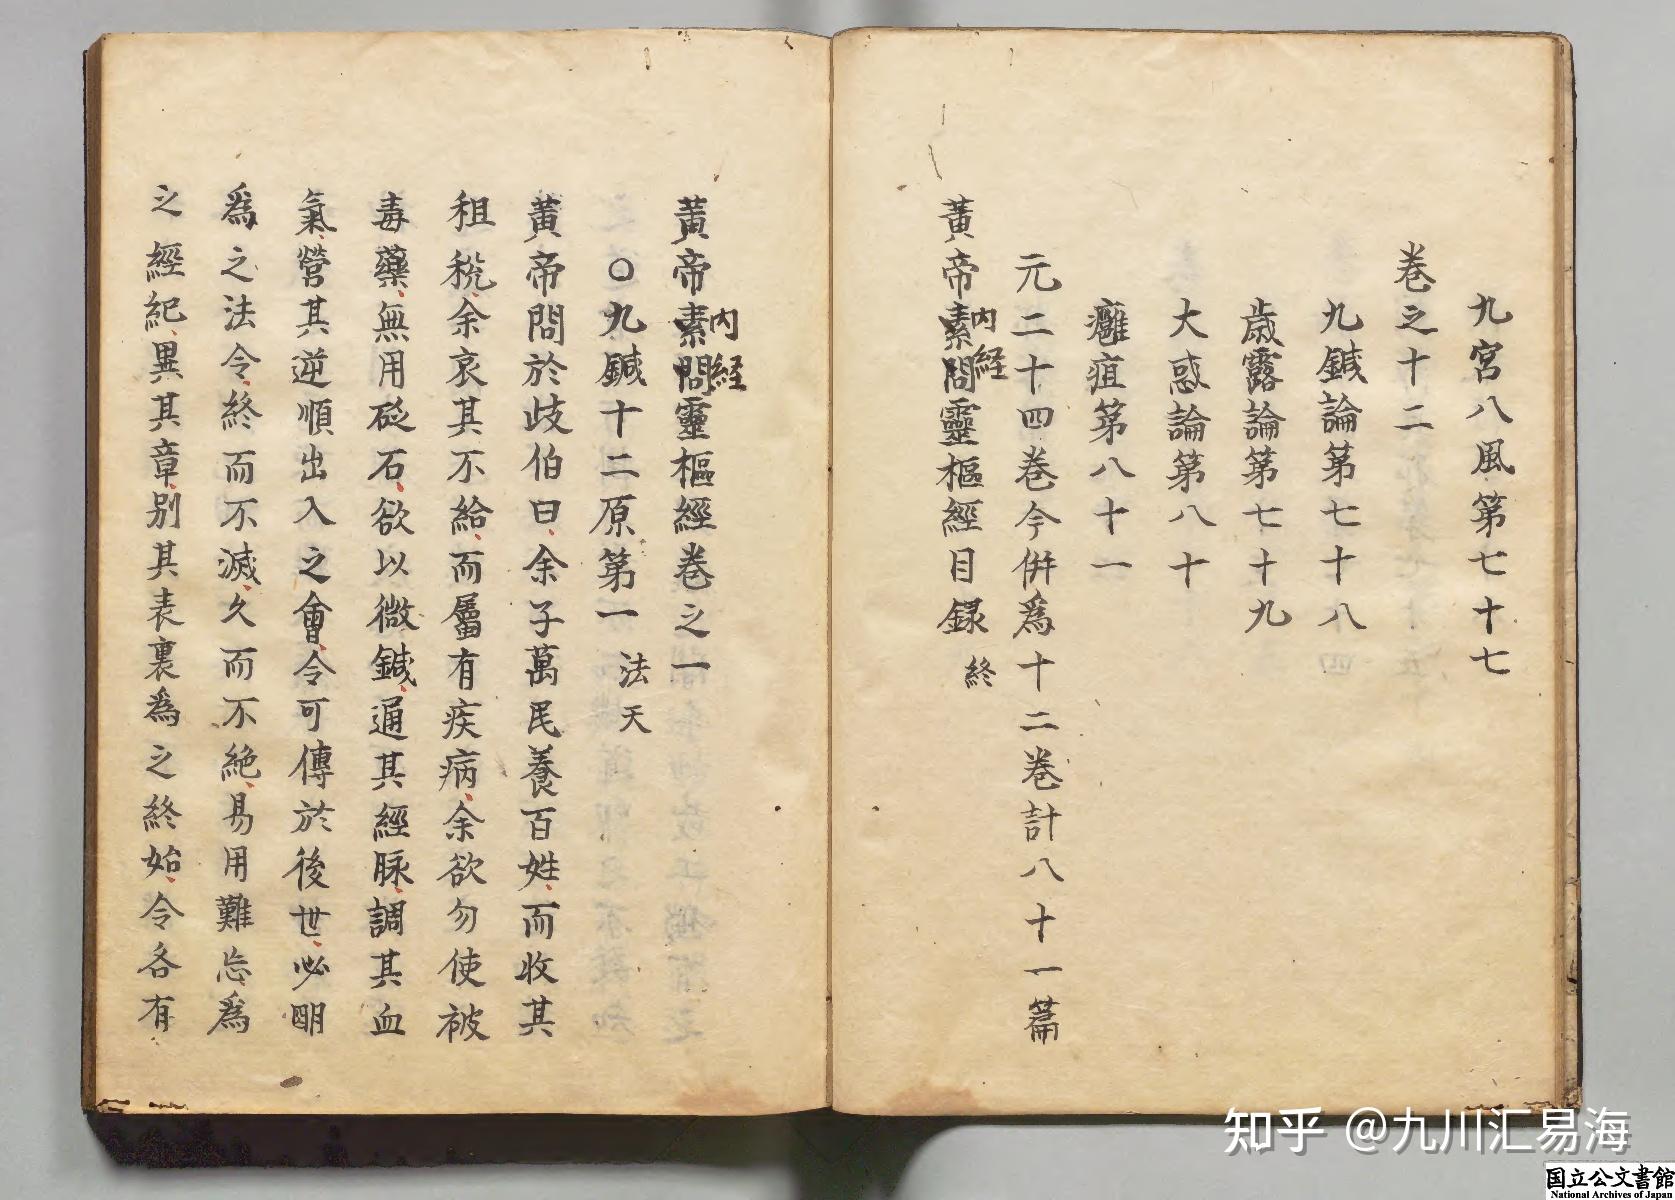 九宮八風第七十七
卷之十二
九鍼論第七十八
歳露論第七十九
大惑論第八十
癰疽第八十一
元二十四卷今併爲十二卷計八十一篇
黃帝素問靈樞經目録 終
内経
黃帝素問靈樞經卷之一
内経
○九鍼十二原第一 法天
黃帝問於歧伯曰、余子萬民養百姓、而收其
租税、余哀其不給、而屬有疾病、余欲勿使被
毒藥、無用砭石、欲以微鍼、通其經脉、調其血
氣、營其逆順出入之會、令可傳於後世、必明
爲之法令、終而不滅、久而不絶、易用難忘、爲
之經紀、異其章、别其表裏爲之終始、令各有
知乎 @九川汇易海
国立公文書館
National Archives of Japan